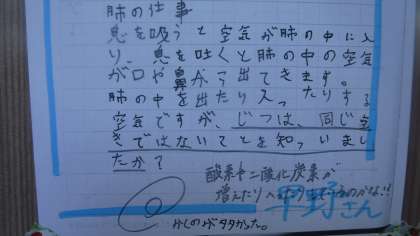 肺の仕事
息を吸うと空気が肺の中に入
り、息を吐くと肺の中の空気
が口や鼻から出てきます。
肺の中を出たり入ったりする
空気ですが、じつは、同じ空
きではないてとを知っていまし
たか？
酸素や二酸化炭素が
増えたりへったり
のかな!!
甲野さん